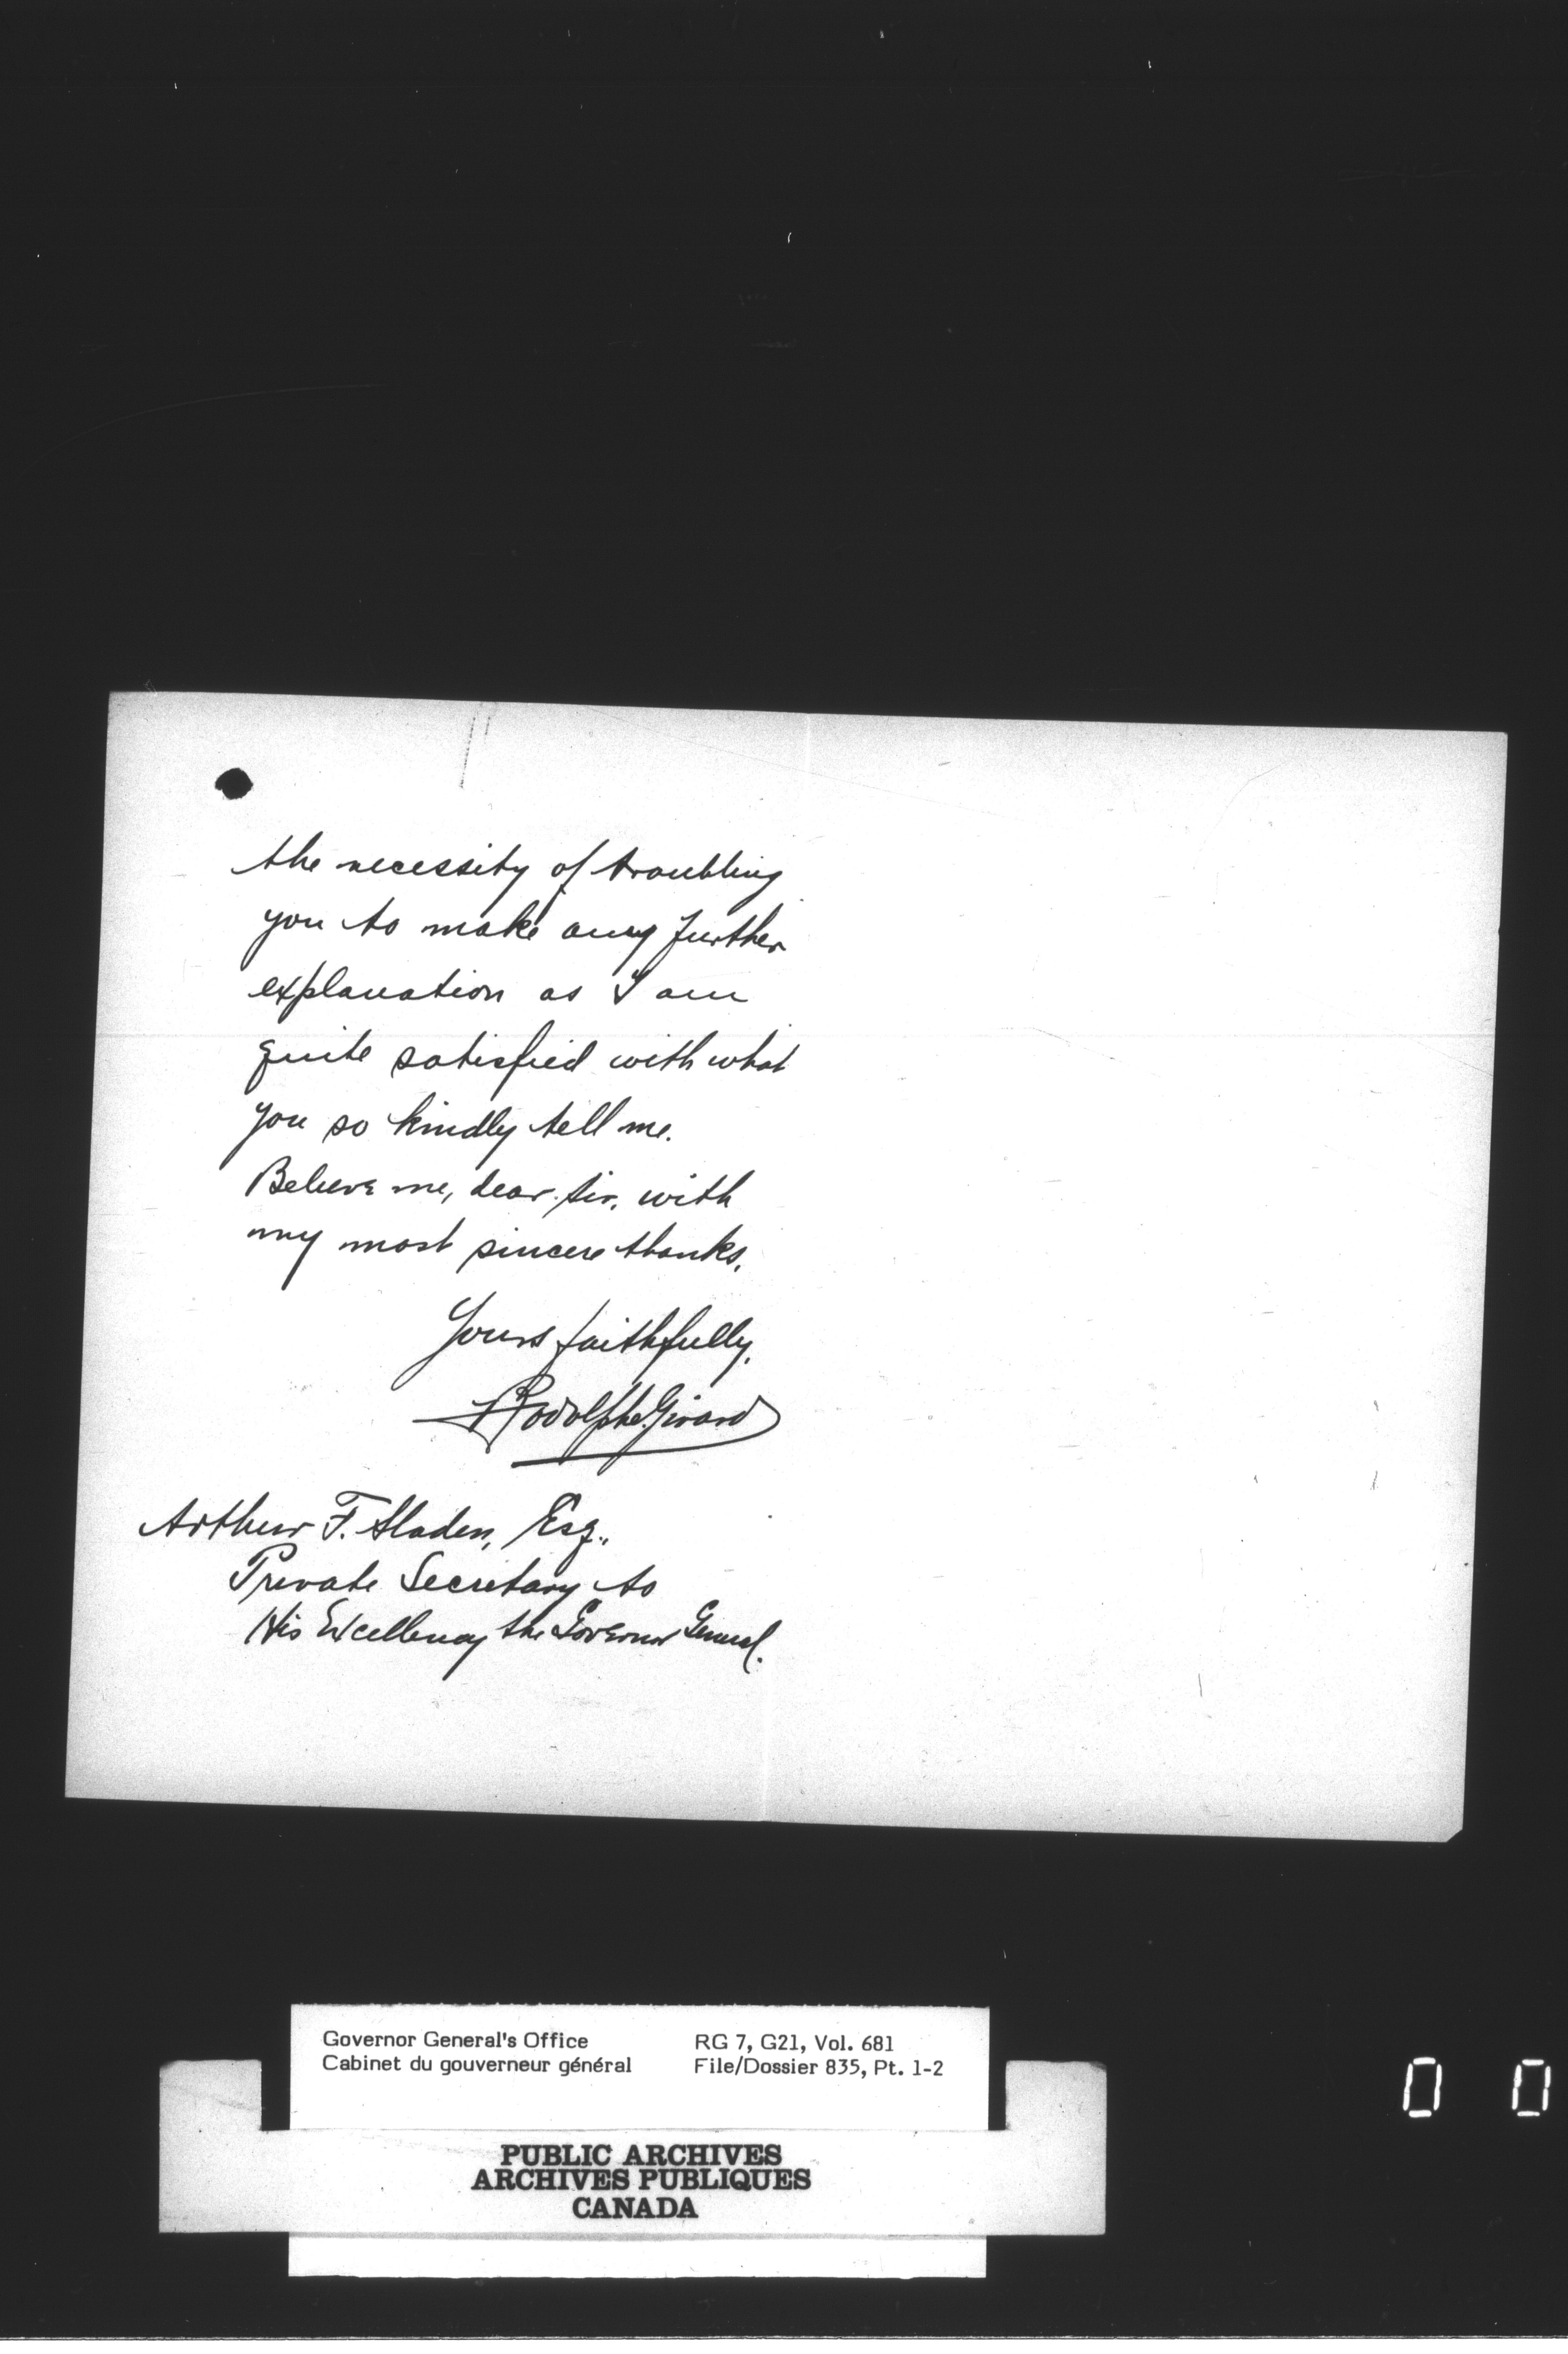 the necessity of troubling
you to make any further
explanation as I am
quite satisfied with what
you so kindly tell me.
Believe me, dear sir, with
my most sincere thanks,
Yours faithfully,
Rodolphe Girard
Arthur F. Sladen, Esq.,
Private Secretary to
His Excellency the Governor General.
Governor General's Office RG 7, G21, Vol. 681
Cabinet du gouverneur général File/Dossier 835, Pt. 1-2
PUBLIC ARCHIVES
ARCHIVES PUBLIQUES
CANADA
0 0